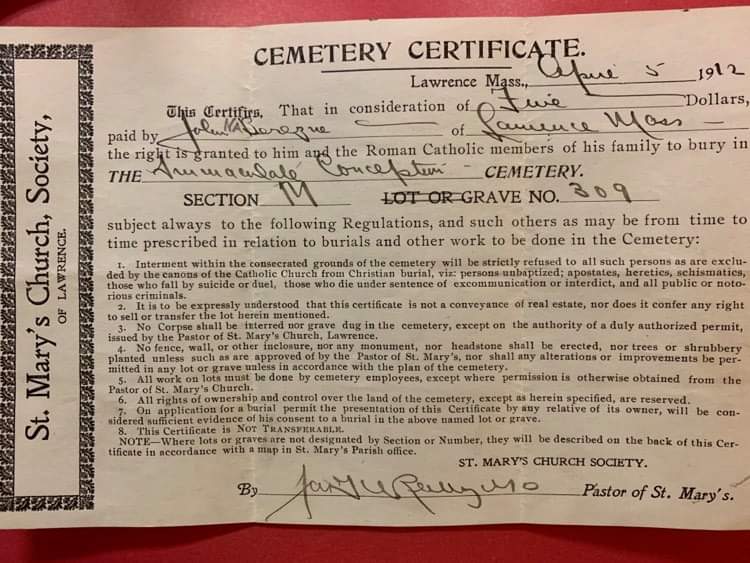 St. Mary's Church, Society,
OF LAWRENCE.
CEMETERY CERTIFICATE.
Lawrence Mass., April 5 1912
This Certifies, That in consideration of Five Dollars,
paid by John of Lawrence Mass
the right is granted to him and the Roman Catholic members of his family to bury in
THE Immaculate Conception CEMETERY.
SECTION M LOT OR GRAVE NO. 309
subject always to the following Regulations, and such others as may be from time to
time prescribed in relation to burials and other work to be done in the Cemetery:
1. Interment within the consecrated grounds of the cemetery will be strictly refused to all such persons as are exclu-
ded by the canons of the Catholic Church from Christian burial, viz: persons unbaptized; apostates, heretics, schismatics,
those who fall by suicide or duel, those who die under sentence of excommunication or interdict, and all public or noto-
rious criminals.
2. It is to be expressly understood that this certificate is not a conveyance of real estate, nor does it confer any right
to sell or transfer the lot herein mentioned.
3. No Corpse shall be interred nor grave dug in the cemetery, except on the authority of a duly authorized permit,
issued by the Pastor of St. Mary's Church, Lawrence.
4. No fence, wall, or other inclosure, nor any monument, nor headstone shall be erected, nor trees or shrubbery
planted unless such are approved of by the Pastor of St. Mary's, nor shall any alterations or improvements be per-
mitted in any lot or grave unless in accordance with the plan of the cemetery.
5. All work on lots must be done by cemetery employees, except where permission is otherwise obtained from the
Pastor of St. Mary's Church.
6. All rights of ownership and control over the land of the cemetery, except as herein specified, are reserved.
7. On application for a burial permit the presentation of this Certificate by any relative of its owner, will be con-
sidered sufficient evidence of his consent to a burial in the above named lot or grave.
8. This Certificate is NOT TRANSFERABLE.
NOTE—Where lots or graves are not designated by Section or Number, they will be described on the back of this Cer-
tificate in accordance with a map in St. Mary's Parish office.
ST. MARY'S CHURCH SOCIETY.
By Pastor of St. Mary's.